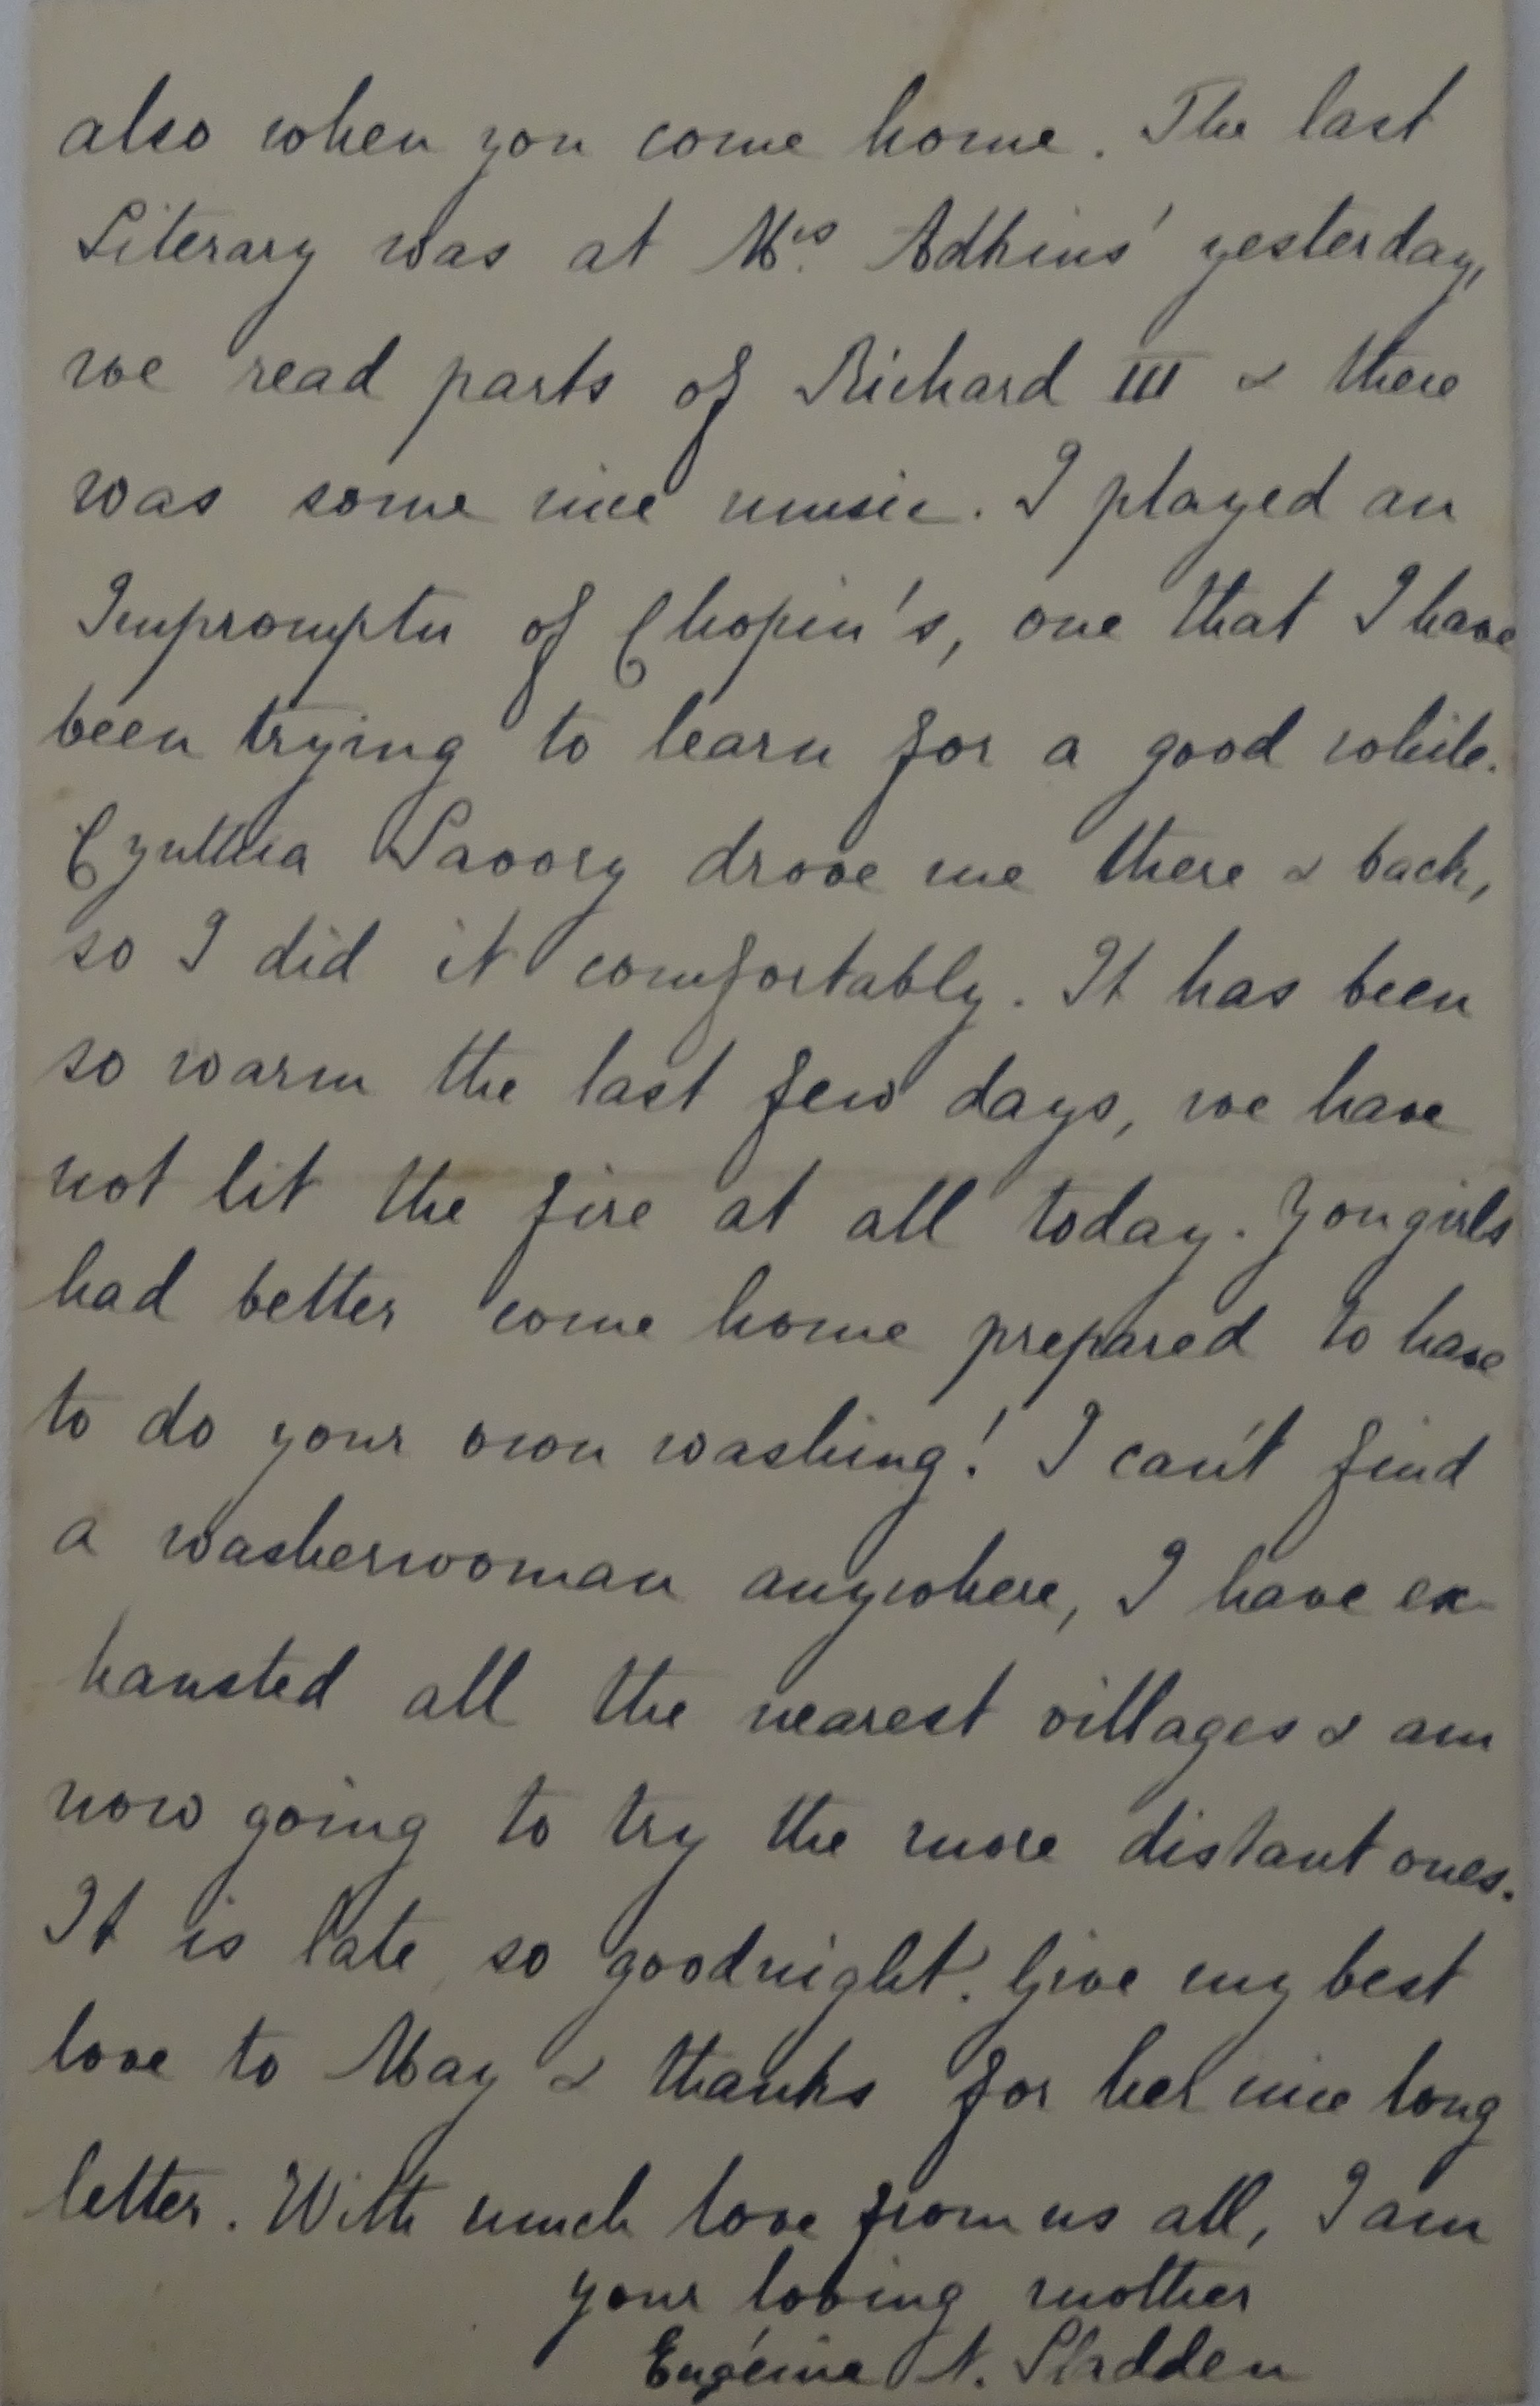 also when you come home. The last
Literary was at Mrs. Adkins' yesterday,
we read parts of Richard III & there
was some nice music. I played an
Impromptu of Chopin's, one that I have
been trying to learn for a good while.
Cynthia Savory drove me there & back,
so I did it comfortably. It has been
so warm the last few days, we have
not lit the fire at all today. You girls
had better come home prepared to have
to do your own washing! I can't find
a washerwoman anywhere, I have ex-
hausted all the nearest villages & am
now going to try the more distant ones.
It is late so goodnight. Give my best
love to May & thanks for her nice long
letter. With much love from us all, I am
your loving mother
Eugénie N. Sladden